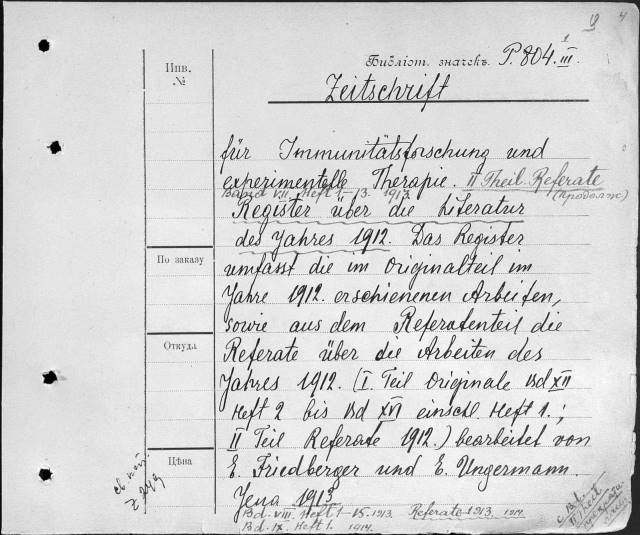 Библіот. значекъ. P. 804. III.
Инв.
№
Zeitschrift
für Immunitätsforschung und
experimentelle Therapie. II Theil. Referate
Band VII. Heft 1-13. 1913. (продолж)
Register über die Literatur
des Jahres 1912. Das Register
По заказу
umfasst die im Originalteil im
Jahre 1912. erschienenen Arbeiten,
sowie aus dem Referatenteil die
Откуда
Referate über die Arbeiten des
Jahres 1912. (I. Teil Originale Bd XII
Heft 2 bis Bd XVI einschl. Heft 1.;
II Teil Referate 1912.) bearbeitet von
Цѣна
E. Friedberger und E. Ungermann.
Jena 1913
Bd. VIII. Heft 1-15. 1913. Referate 1913, 1914.
Bd. IX. Heft 1. 1914.